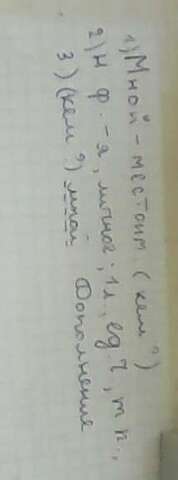 1) Мной - местоим. (кем?)
2) Н.ф. - я, личное, 1л., ед.ч, т.п.,
3.) (кем?) мной Дополнение